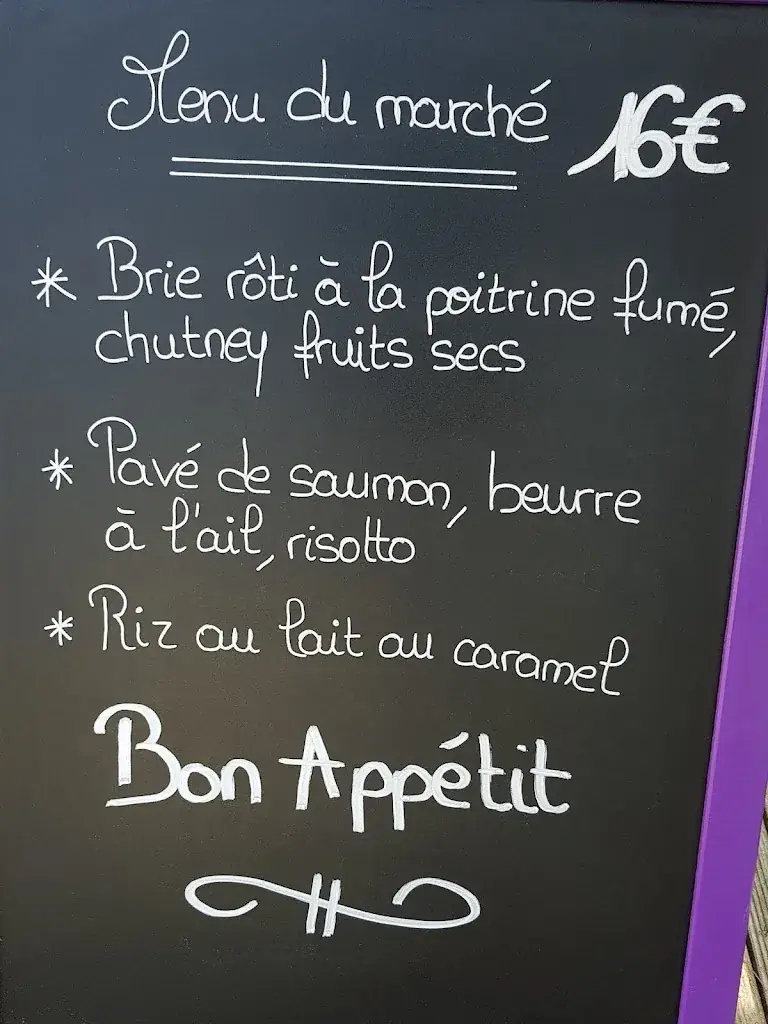 Menu du marché 16€
* Brie rôti à la poitrine fumé,
chutney fruits secs
* Pavé de saumon, beurre
à l'ail, risotto
* Riz au lait au caramel
Bon Appétit